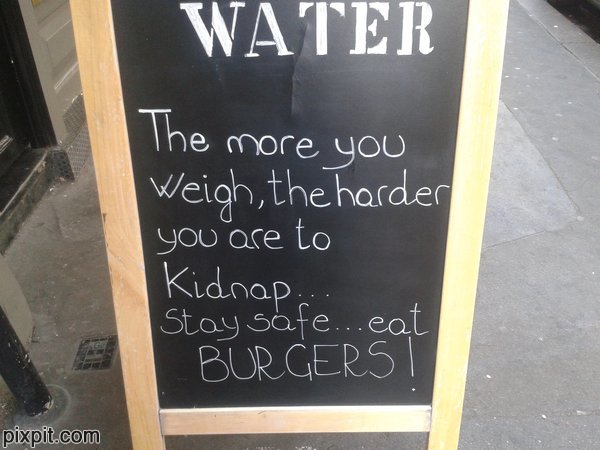 WATER
The more you
Weigh, the harder
you are to
Kidnap...
Stay safe...eat
BURGERS!
pixpit.com